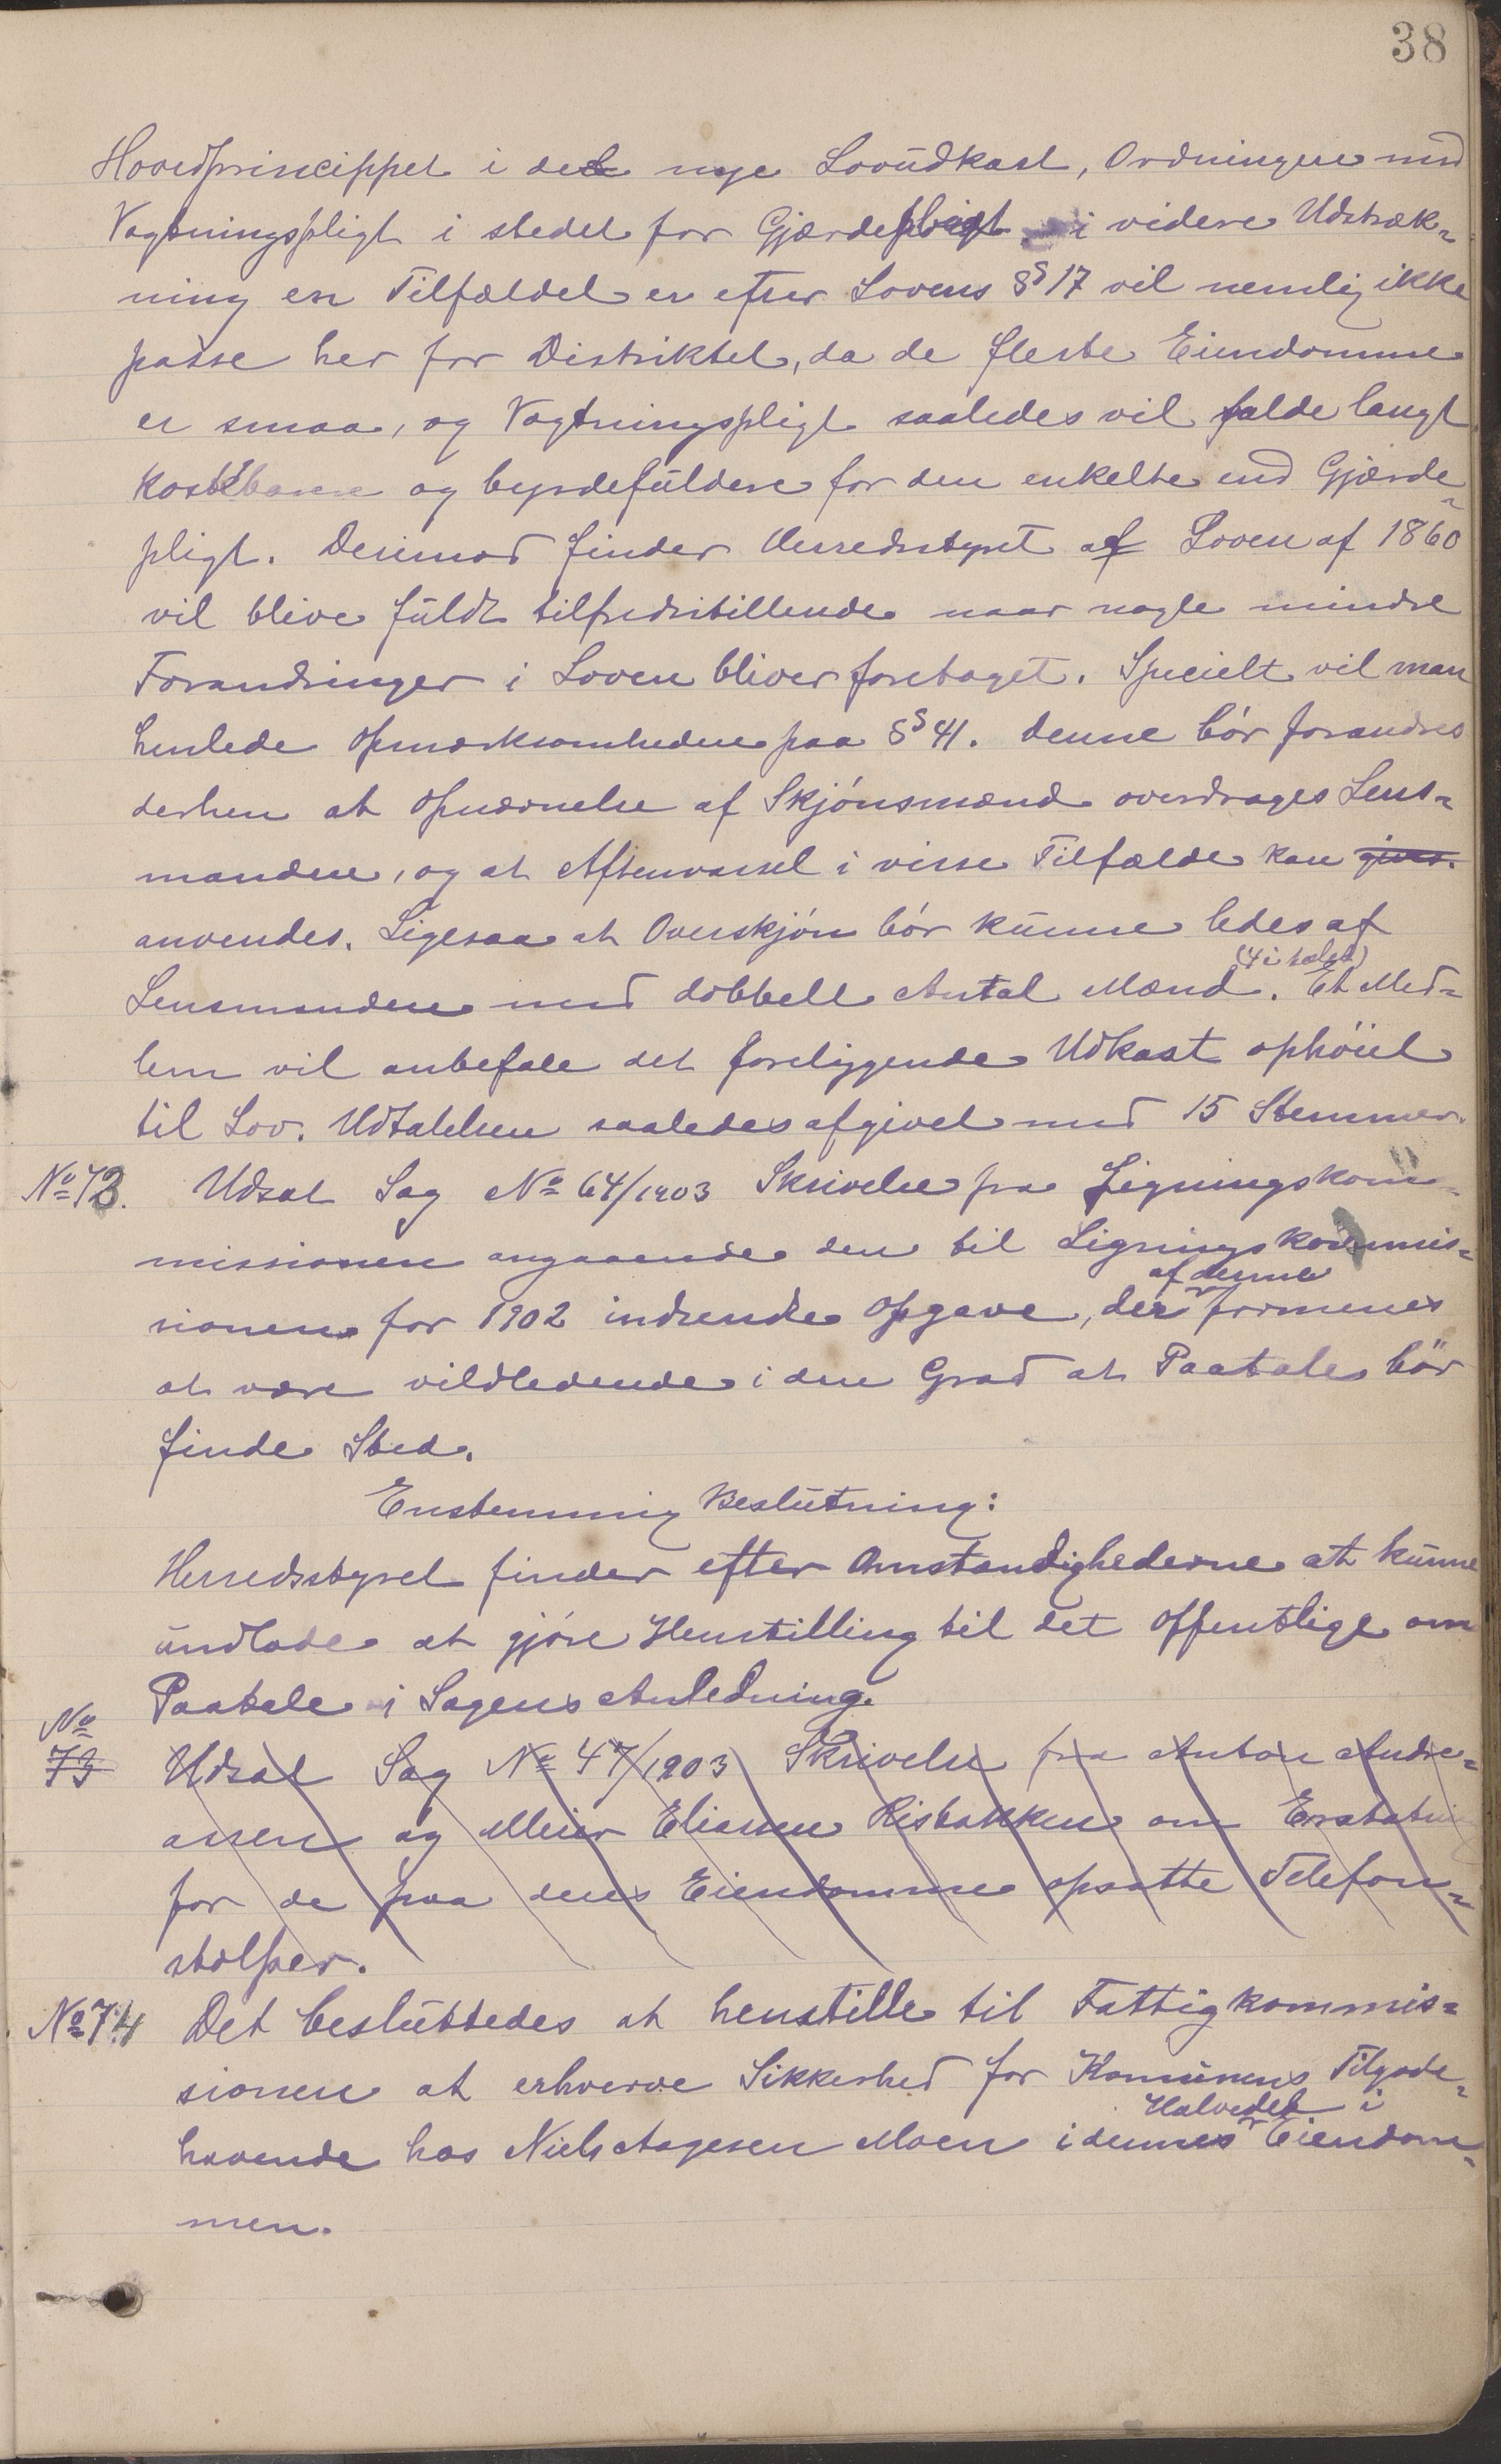 38
Hovedprincippet i det nye Lovudkast, Ordningen med
Vogtningspligt i stedet for Gjærdepligt i videre Udstræk-
ning en Tilfældet er efter Lovens § 17 vil nemlig ikke
passe her for Distriktet, da de fleste Eiendomme
er smaa, og Vogtningspligt saaledes vil falde langt
kostbarere og byrdefuldere for den enkelte end Gjærde-
pligt. Derimod finder Herredsstyret af Loven af 1860
vil blive fuldt tilfredsstillende naar nogle mindre
Forandringer i Loven bliver foretaget. Specielt vil man
henlede Opmærksomheden paa § 41. Denne bör forandres
derhen at Opnævnelse af Skjönsmænd overdrages Lens-
manden, og at Aftenvarsel i visse Tilfælde kan gives.
anvendes. Ligesaa at Overskjön bör kunne ledes af
Lensmanden med dobbelt Antal Mænd (4 i talet). Et Med-
lem vil anbefale det foreliggende Udkast ophöiet
til Lov. Udtalelsen saaledes afgivet med 15 Stemmer.
No 73. Udsat Sag No 64/1903 Skrivelse fra Ligningskom-
missionen angaaende den til Ligningskommis-
sionen for 1902 indsendte Opgave, der af denne formenes
at være vildledende i den Grad at Paatale bör
finde Sted.
Enstemmig Beslutning:
Herredsstyret finder efter Omstændighederne at kunne
undlade at gjöre Henstilling til det Offentlige om
Paatale i Sagens Anledning.
No 73 Udsat Sag No 47/1903 Skrivelse fra Anton Andre-
assen og Meier Eliassen Risbakken om Erstatning
for de paa deres Eiendomme opsatte Telefon-
stolper.
No 74 Det besluttedes at henstille til Fattigkommis-
sionen at erhverve Sikkerhed for Komunens Tilgode-
havende hos Niels Aagesen Moen i dennes Halvedel i Eiendom-
men.